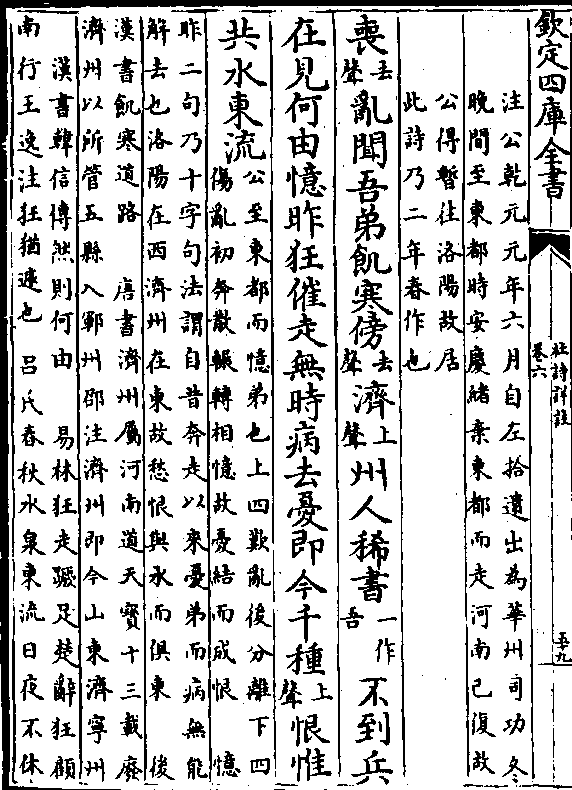 欽定四庫全書
杜詩詳註
卷六
注公乾元元年六月自左拾遺出為華州司功冬
晚間至東都時安慶緒棄東都而走河南已復故
公得暫往洛陽故居
此詩乃二年春作也
喪去聲亂聞吾弟飢寒傍去聲濟上聲州人稀書一作吾不到兵
在見何由憶昨狂催走無時病去憂即今千種上聲恨惟
共水東流公至東都而憶弟也上四歎亂後分離下四
傷亂初奔散輾轉相憶故憂結而成恨 憶
昨二句乃十字句法謂自昔奔走以來憂弟而病無能
解去也洛陽在西濟州在東故愁恨與水而俱東 後
漢書飢寒道路 唐書濟州屬河南道天寶十三載廢
濟州以所管五縣入鄆州邵注濟州即今山東濟寧州
漢書韓信傳然則何由 易林狂走蹶足楚辭狂顧
南行王逸注狂猶遽也 呂氏春秋水泉東流日夜不休